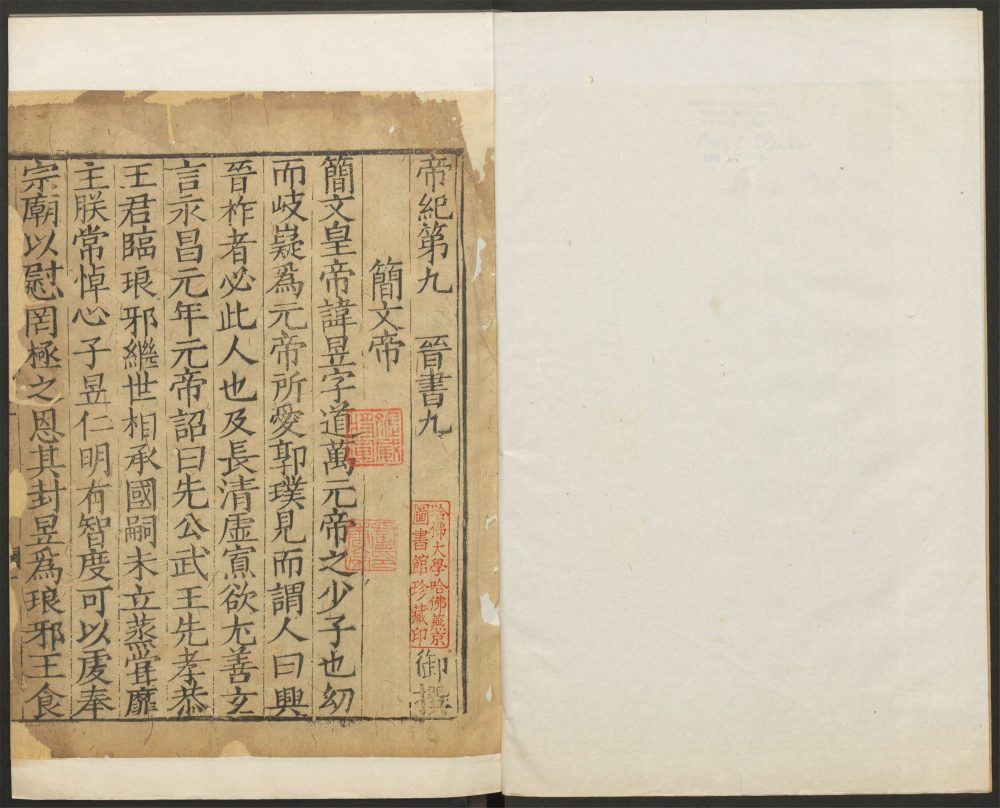 帝紀第九　晉書九　御撰
簡文帝
簡文皇帝諱昱字道萬元帝之少子也幼
而岐嶷爲元帝所愛郭璞見而謂人曰興
晉祚者必此人也及長清虛寡欲尤善玄
言永昌元年元帝詔曰先公武王先孝恭
王君臨琅邪繼世相承國嗣未立蒸甞靡
主朕常悼心子昱仁明有智度可以虔奉
宗廟以慰罔極之恩其封昱爲琅邪王食
哈佛大學哈佛燕京
圖書館珍藏印